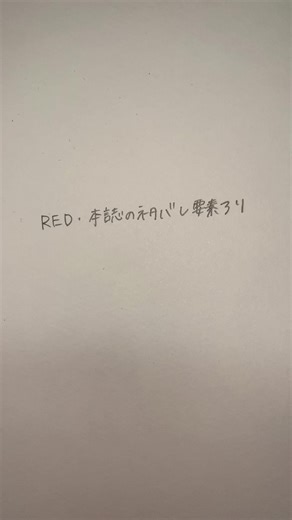 RED・本誌のネタバレ要素あり